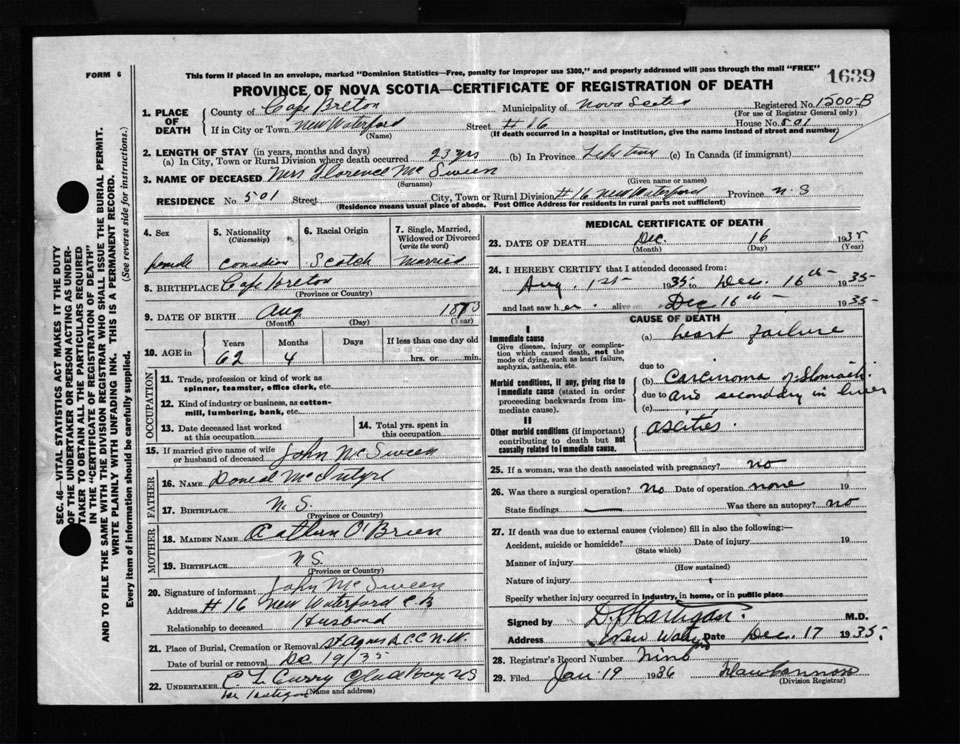 FORM 6
This form if placed in an envelope, marked "Dominion Statistics—Free, penalty for improper use $300," and properly addressed will pass through the mail "FREE"
1639
PROVINCE OF NOVA SCOTIA—CERTIFICATE OF REGISTRATION OF DEATH
1. PLACE OF DEATH
County of Cape Breton Municipality of Nova Scotia Registered No. 1500-B
(For use of Registrar General only)
If in City or Town New Waterford Street #16 House No. 501
(Name) (If death occurred in a hospital or institution, give the name instead of street and number)
2. LENGTH OF STAY (in years, months and days)
(a) In City, Town or Rural Division where death occurred 23 yrs (b) In Province Life time (c) In Canada (if immigrant)
3. NAME OF DECEASED Mrs Florence McSween
(Surname) (Given name or names)
RESIDENCE No. 501 Street City, Town or Rural Division #16 New Waterford Province N.S
(Residence means usual place of abode. Post Office Address for residents in rural parts not sufficient)
SEC. 46—VITAL STATISTICS ACT MAKES IT THE DUTY
OF THE UNDERTAKER OR PERSON ACTING AS UNDER-
TAKER TO OBTAIN ALL THE PARTICULARS REQUIRED
IN THE "CERTIFICATE OF REGISTRATION OF DEATH"
AND TO FILE THE SAME WITH THE DIVISION REGISTRAR WHO SHALL ISSUE THE BURIAL PERMIT.
WRITE PLAINLY WITH UNFADING INK. THIS IS A PERMANENT RECORD.
Every item of information should be carefully supplied. (See reverse side for instructions.)
4. Sex
female
5. Nationality
(Citizenship)
Canadian
6. Racial Origin
Scotch
7. Single, Married,
Widowed or Divorced
(write the word)
Married
8. BIRTHPLACE Cape Breton
(Province or Country)
9. DATE OF BIRTH Aug 1873
(Month) (Day) (Year)
10. AGE in
Years Months Days If less than one day old
62 4 hrs. or min.
OCCUPATION
11. Trade, profession or kind of work as
spinner, teamster, office clerk, etc.
12. Kind of industry or business, as cotton-
mill, lumbering, bank, etc.
13. Date deceased last worked
at this occupation
14. Total yrs. spent in
this occupation
15. If married give name of wife
or husband of deceased John McSween
FATHER
16. NAME Doneal McIntyre
17. BIRTHPLACE N.S.
(Province or Country)
MOTHER
18. MAIDEN NAME O'Brien
19. BIRTHPLACE N.S.
(Province or Country)
20. Signature of informant John McSween
Address #16 New Waterford C.B
Relationship to deceased Husband
21. Place of Burial, Cremation or Removal St Agnes R.C.C N.W.
Date of burial or removal Dec 19/35
22. UNDERTAKER Curry Glace Bay NS
(Name and address)
MEDICAL CERTIFICATE OF DEATH
23. DATE OF DEATH Dec. 16 1935
(Month) (Day) (Year)
24. I HEREBY CERTIFY that I attended deceased from:
Aug. 1st 1935 to Dec. 16th 1935
and last saw her alive on Dec 16th 1935
CAUSE OF DEATH
I
Immediate cause
Give disease, injury or complica-
tion which caused death, not the
mode of dying, such as heart failure,
asphyxia, asthenia, etc.
(a) heart failure
due to
Morbid conditions, if any, giving rise to
immediate cause (stated in order
proceeding backwards from im-
mediate cause).
(b) Carcinoma of Stomach
due to and secondary in liver
(c)
II
Other morbid conditions (if important)
contributing to death but not
causally related to immediate cause.
ascities.
25. If a woman, was the death associated with pregnancy? no
26. Was there a surgical operation? no Date of operation none 19
State findings — Was there an autopsy? no
27. If death was due to external causes (violence) fill in also the following:—
Accident, suicide or homicide? Date of injury 19
(State which)
Manner of injury
(How sustained)
Nature of injury
Specify whether injury occurred in industry, in home, or in public place
Signed by Hartigan M.D.
Address New Waterford Date Dec. 17 1935
28. Registrar's Record Number Nine
29. Filed Jan. 19 1936
(Division Registrar)